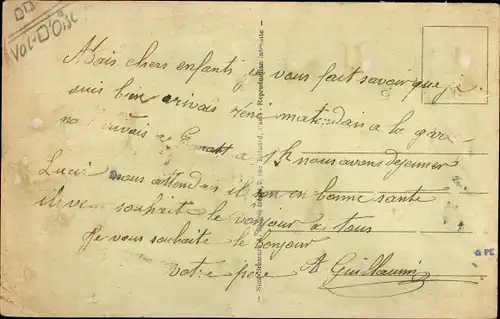 Val-D'Oise
Mais chers enfants je vous fait savoir que je
suis bien arivais René matendais a la gare
arivais a a 1h nous avons dejeuner
Lucie nous attendais il son en bonne sante
il vous souhaite le bonjour a tous
Je vous souhaite le bonjour
votre père A Guillaumin
Reproduction interdite